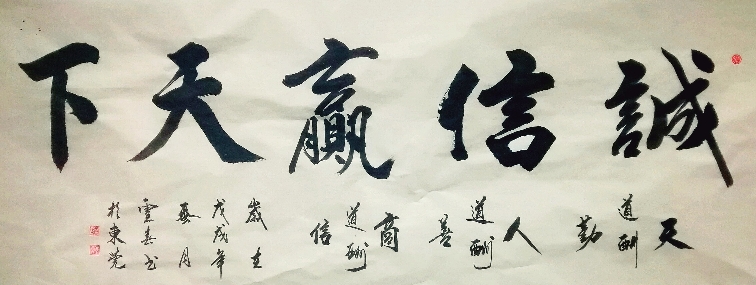 誠信贏天下
天道酬勤
人道酬善
商道酬信
歲在
戊戌年
月
書
於東莞